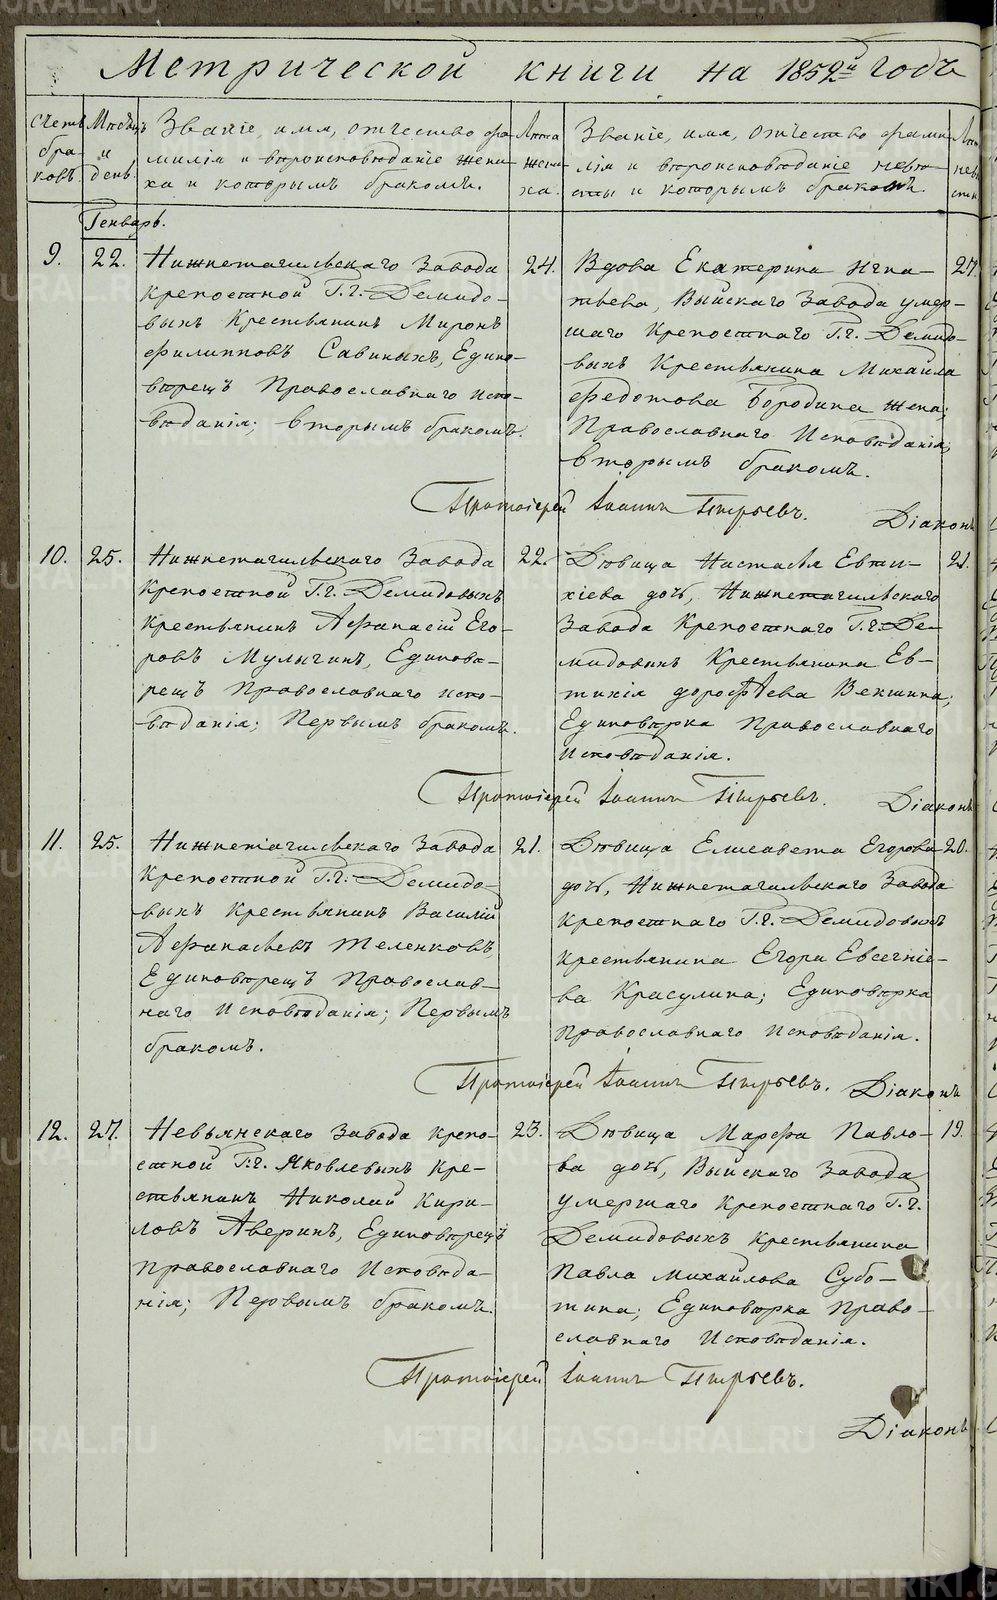 METRIKI.GASO-URAL.RU
Метрической книги на 1852й годъ
Счетъ браковъ
Мѣсяцъ и день.
Званіе, имя, отчество фа-
милія и вѣроисповѣданіе жени-
ха и которымъ бракомъ.
Лѣта жени-
ха.
Званіе, имя, отчество фами-
лія и вѣроисповѣданіе невѣ-
сты и которымъ бракомъ.
Генварь.
9.
22.
Нижнетагильскаго Завода
крѣпостной Г.г. Демидо-
выхъ Крестьянинъ Миронъ
Филипповъ Савиныхъ, Едино-
вѣрецъ Православнаго испо-
вѣданія; вторымъ бракомъ.
24.
Вдова Екатерина Игна-
тьева, Выйскаго Завода умер-
шаго Крепостнаго Г.г. Демидо-
выхъ Крестьянина Михайла
Федотова Бородина жена;
Православнаго Исповѣданія;
вторымъ бракомъ.
27.
Протоіерей Іоаннъ Пырьевъ.
Діаконъ
10.
25.
Нижнетагильскаго Завода
Крепостной Г.г. Демидовыхъ
крестьянинъ Афанасій Его-
ровъ Мулыгинъ, Единовѣ-
рецъ Православнаго испо-
вѣданія; Первымъ бракомъ.
22.
Дѣвица Настасья Евти-
хіева дочь, Нижнетагильскаго
Завода Крепостнаго Г.г. Де-
мидовыхъ Крестьянина Ев-
тихія Дорофѣева Векшина;
Единовѣрка Православнаго
Исповѣданія.
21.
Протоіерей Іоаннъ Пырьевъ.
Діаконъ
11.
25.
Нижнетагильскаго Завода
Крепостной Г.г. Демидо-
выхъ Крестьянинъ Василій
Афанасьевъ Теленковъ
Единовѣрецъ Православ-
наго Исповѣданія; Первымъ
бракомъ.
21.
Дѣвица Елисавета Егорова
дочь, Нижнетагильскаго Завода
крепостнаго Г.г. Демидовыхъ
крестьянина Егора Евсегніе-
ва Красулина; Единовѣрка
Православнаго Исповѣданія.
20.
Протоіерей Іоаннъ Пырьевъ.
Діаконъ
12.
27.
Невьянскаго Завода крепо-
стной Г.г. Яковлевыхъ Кре-
стьянинъ Николай Кири-
ловъ Аверинъ, Единовѣрецъ
Православнаго Исповѣда-
нія; Первымъ бракомъ.
23.
Дѣвица Марфа Павло-
ва дочь, Выйскаго Завода
умершаго Крепостнаго Г.г.
Демидовыхъ Крестьянина
Павла Михайлова Субо-
тина; Единовѣрка Право-
славнаго Исповѣданія.
19.
Протоіерей Іоаннъ Пырьевъ.
Діаконъ
METRIKI.GASO-URAL.RU